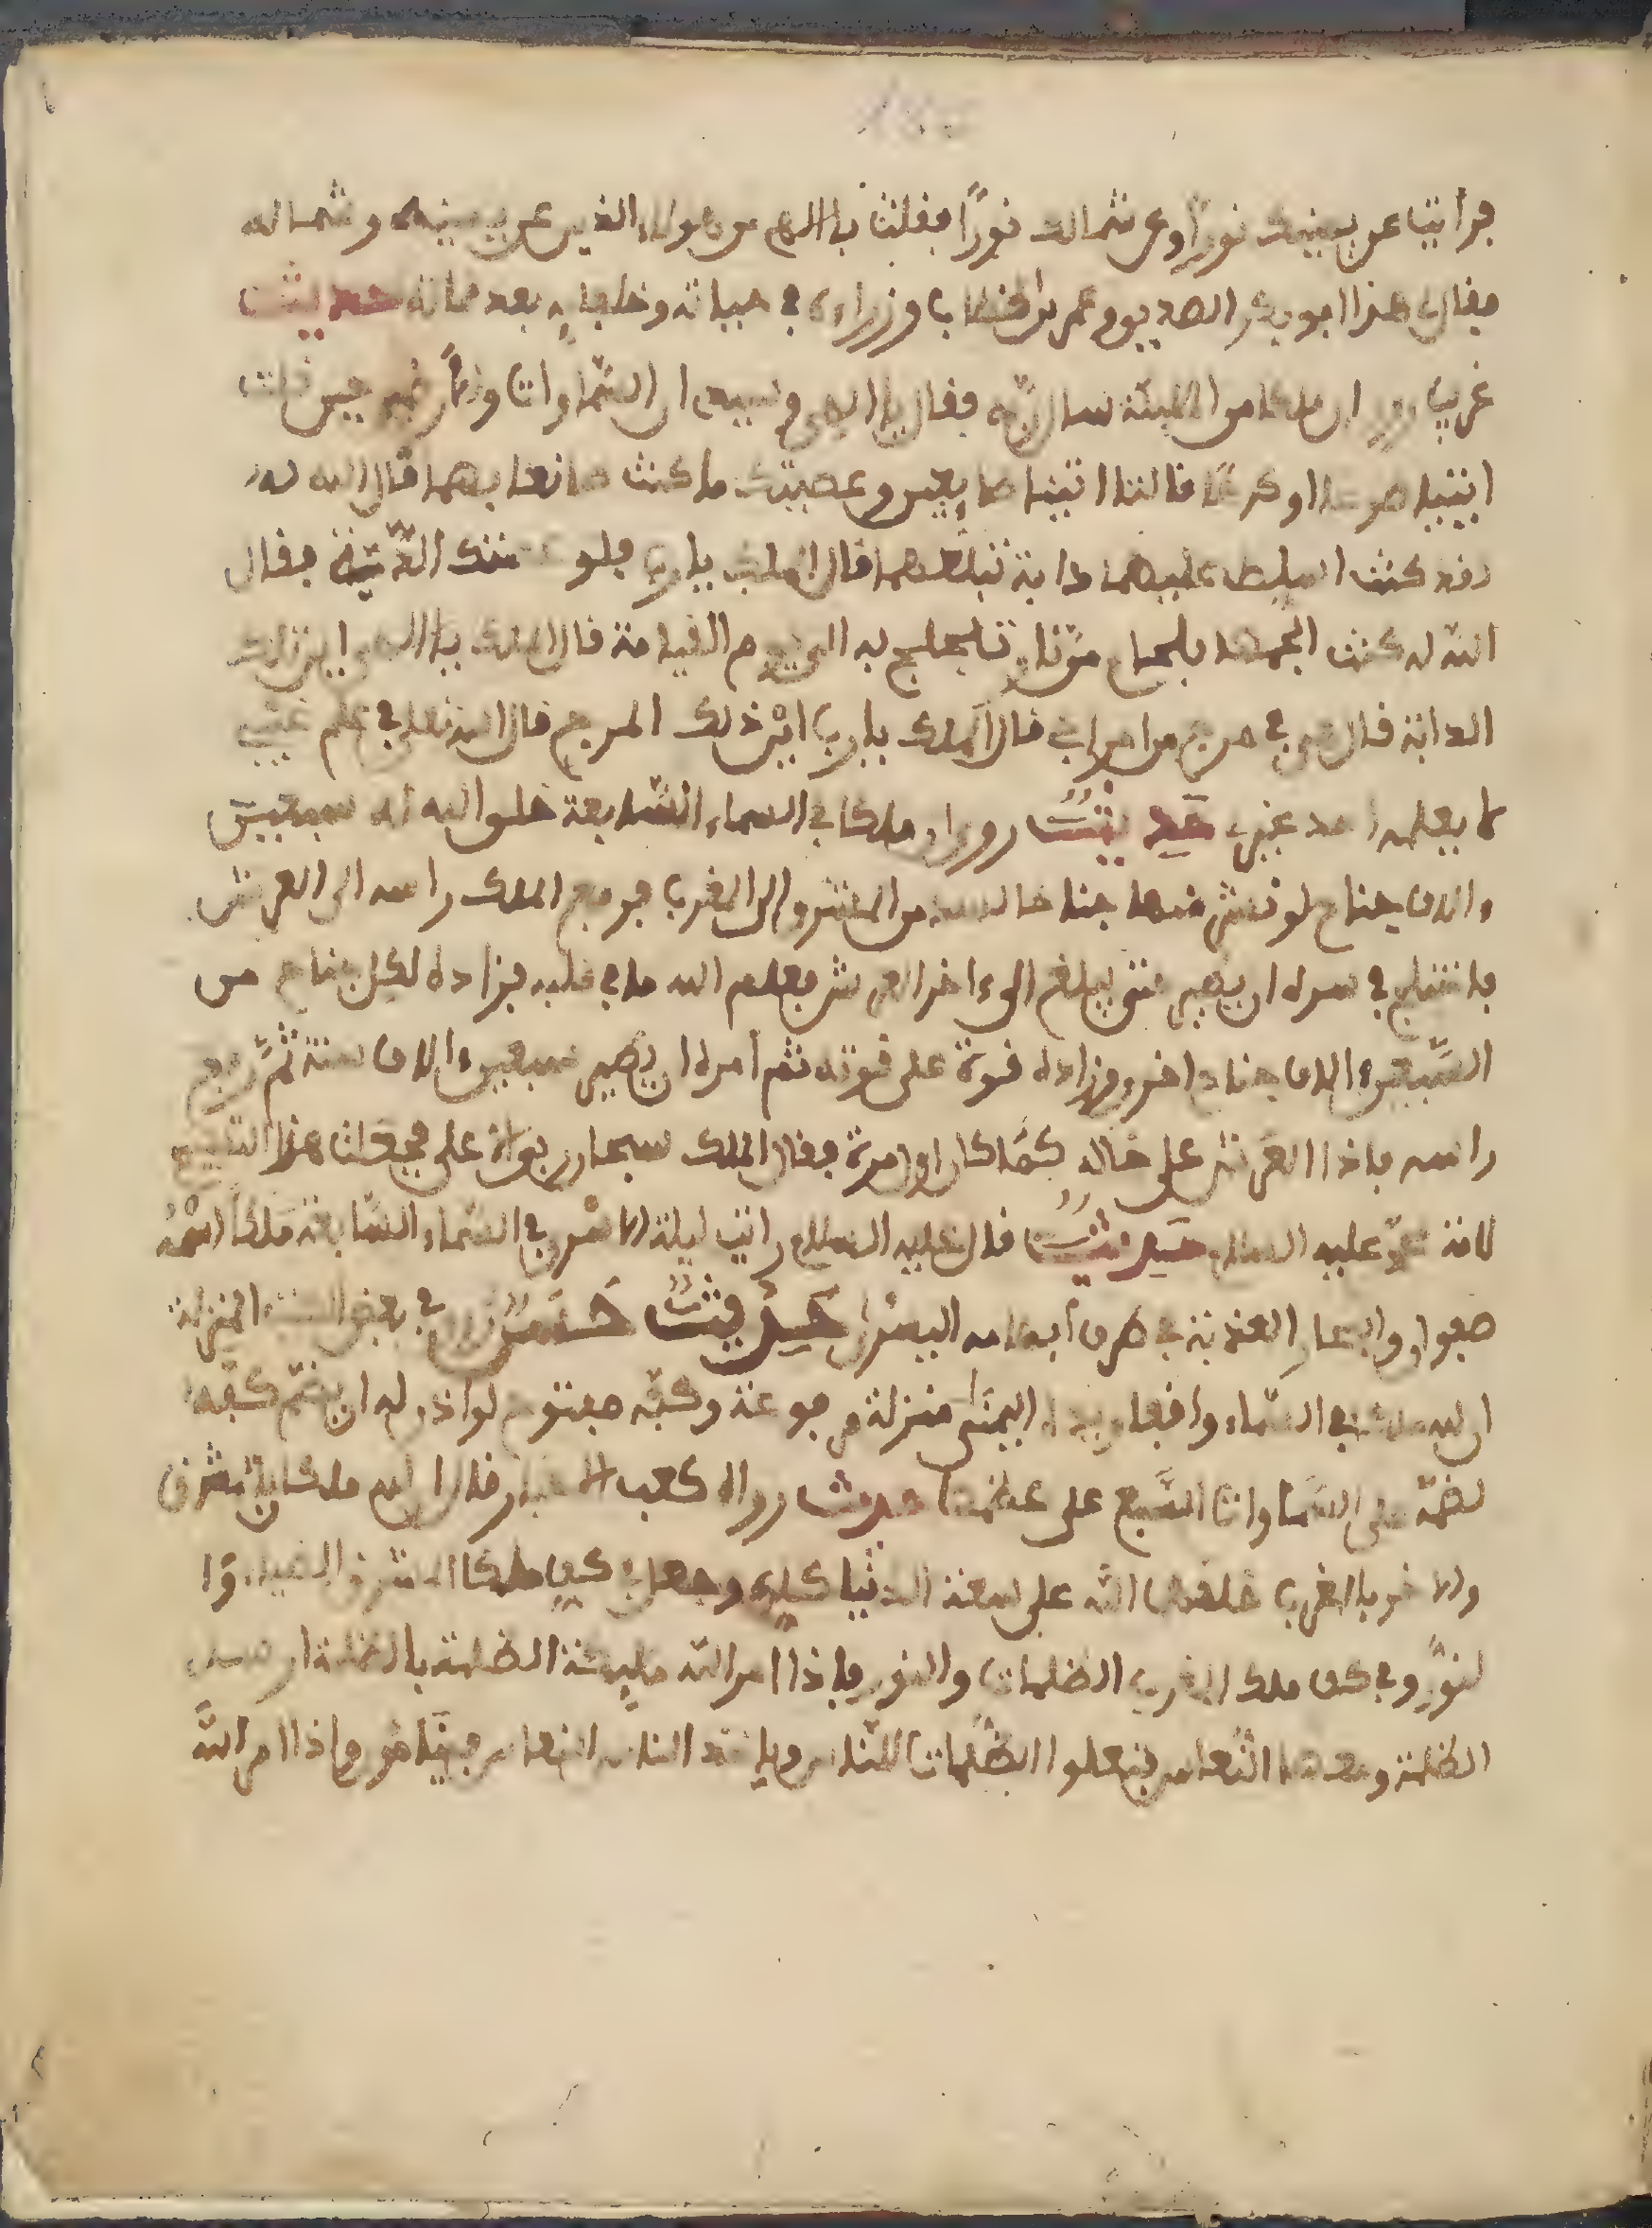 فرأيت عن يمينك نورًا وعن شمالك نورًا فقلت يا الهي من هؤلاء الذين عن يمينه وشماله
فقال هذا ابو بكر الصديق وعمر بن الخطاب وزراءه في حياته وخلفاءه بعد مماته حديث
غريب روي ان ملكا من الملئكة سال ربه فقال يا الهي وسيدي ان السماوات والأرض حين قلت
ايتيا طوعا او كرها قالتا اتينا طايعين وعصيتك ما كنت صانعا بهما قال الله له
قد كنت اسلط عليهما دابة تبلعهما قال الملك يا رب فلو عصتك الدابة فقال
الله له كنت الجمها بلجام من نار تلجلج به الى يوم القيامة قال الملك يا الهي اين تلك
الدابة قال هي في مرج من مراجي قال الملك يا رب اين ذلك المرج قال الله تعلى في علم غيبي
لا يعلمه احد غيري حديث روي ان ملكا في السماء السابعة خلق الله له سبعين
الاف جناح لو نشر منها جناحا لسد من المشرق الى المغرب فرفع الملك راسه الى العرش
فاختلج في سره ان يطير حتى يبلغ الى ءاخر العرش فعلم الله ما في قلبه فزاده لكل جناح من
السبعين الاف جناح اخر وزاده قوة على قوته ثم امره ان يطير سبعين الاف سنة ثم رفع
راسه فاذا العرش على حاله كما كان اول مرة فقال الملك سبحان ربي الاعلى فجعلت هذا التسبيح
لامة محمد عليه السلام حديث قال عليه السلام رايت ليلة الاسرى في السماء السابعة ملكا اسمه
صعوا والبحار العذبة في طرف ابهامه اليسرى حديث حسن روي في بعض الكتب المنزلة
ان لله ملكا في السماء واقفا ويده اليمنى منزلة مرفوعة وكفه مفتوح لو اذن له ان يضم كفه
لضمه على السماوات السبع على عظمها حديث رواه كعب الاحبار قال ان لله ملكا بالمشرق
والاخر بالمغرب خلقهما الله على سعة الدنيا كلها وجعل في كف ملك المشرق الضياء وا
لنور وفي كف ملك المغرب الظلمات والنور فاذا امر الله مليكة الظلمة بالظلمة ارسل
الظلمة ومعها النعاس فتعلوا الظلمات للناس وياخذ الناس النعاس فيناموا واذا امر الله